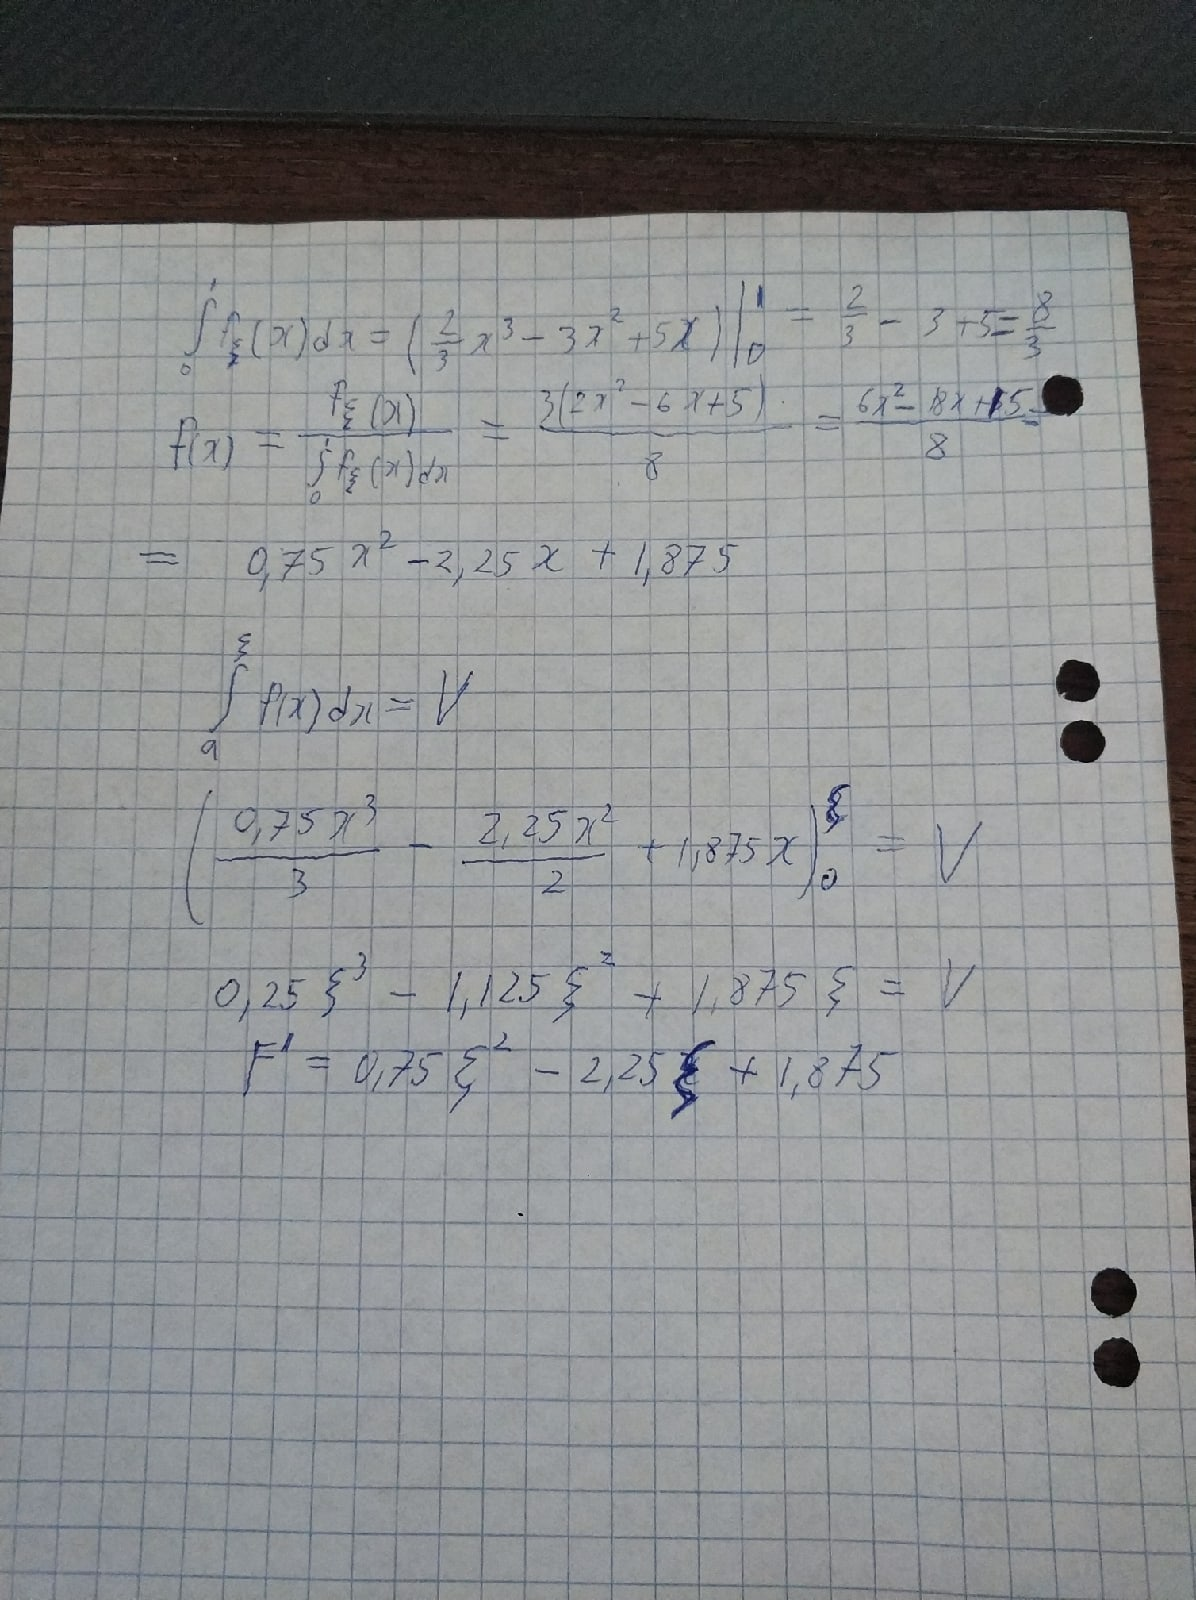 ∫₀¹ f_ξ(x)dx = (2/3 x³ − 3x² + 5x)|₀¹ = 2/3 − 3 + 5 = 8/3
f(x) = f_ξ(x) / ∫₀¹ f_ξ(x)dx = 3(2x² − 6x + 5) / 8 = 6x² − 18x + 15 / 8 =
= 0,75x² − 2,25x + 1,875
∫ₐ^ξ f(x)dx = V
(0,75x³/3 − 2,25x²/2 + 1,875x)₀^ξ = V
0,25ξ³ − 1,125ξ² + 1,875ξ = V
F' = 0,75ξ² − 2,25ξ + 1,875